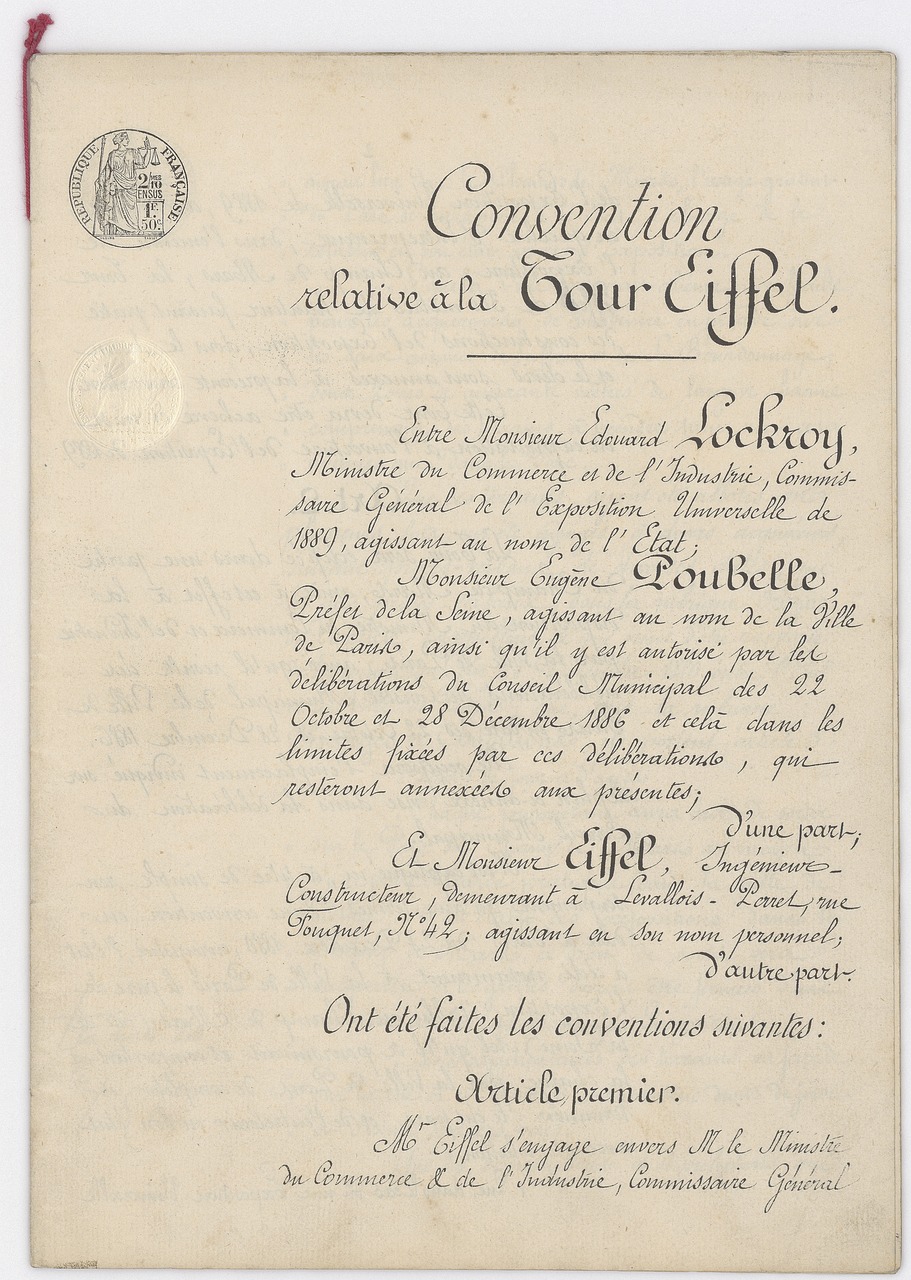 RÉPUBLIQUE FRANÇAISE
2/10
EN SUS
1F.
50c
Convention
relative à la Tour Eiffel.
Entre Monsieur Edouard Lockroy,
Ministre du Commerce et de l'Industrie, Commis-
saire Général de l'Exposition Universelle de
1889, agissant au nom de l'Etat;
Monsieur Eugène Poubelle,
Préfet de la Seine, agissant au nom de la Ville
de Paris, ainsi qu'il y est autorisé par les
délibérations du Conseil Municipal des 22
Octobre et 28 Décembre 1886 et celà dans les
limites fixées par ces délibérations, qui
resteront annexées aux présentes;
d'une part;
Et Monsieur Eiffel, Ingénieur-
Constructeur, demeurant à Levallois-Perret, rue
Fouquet, N° 42; agissant en son nom personnel;
d'autre part.
Ont été faites les conventions suivantes:
Article premier.
Mr Eiffel s'engage envers M le Ministre
du Commerce & de l'Industrie, Commissaire Général